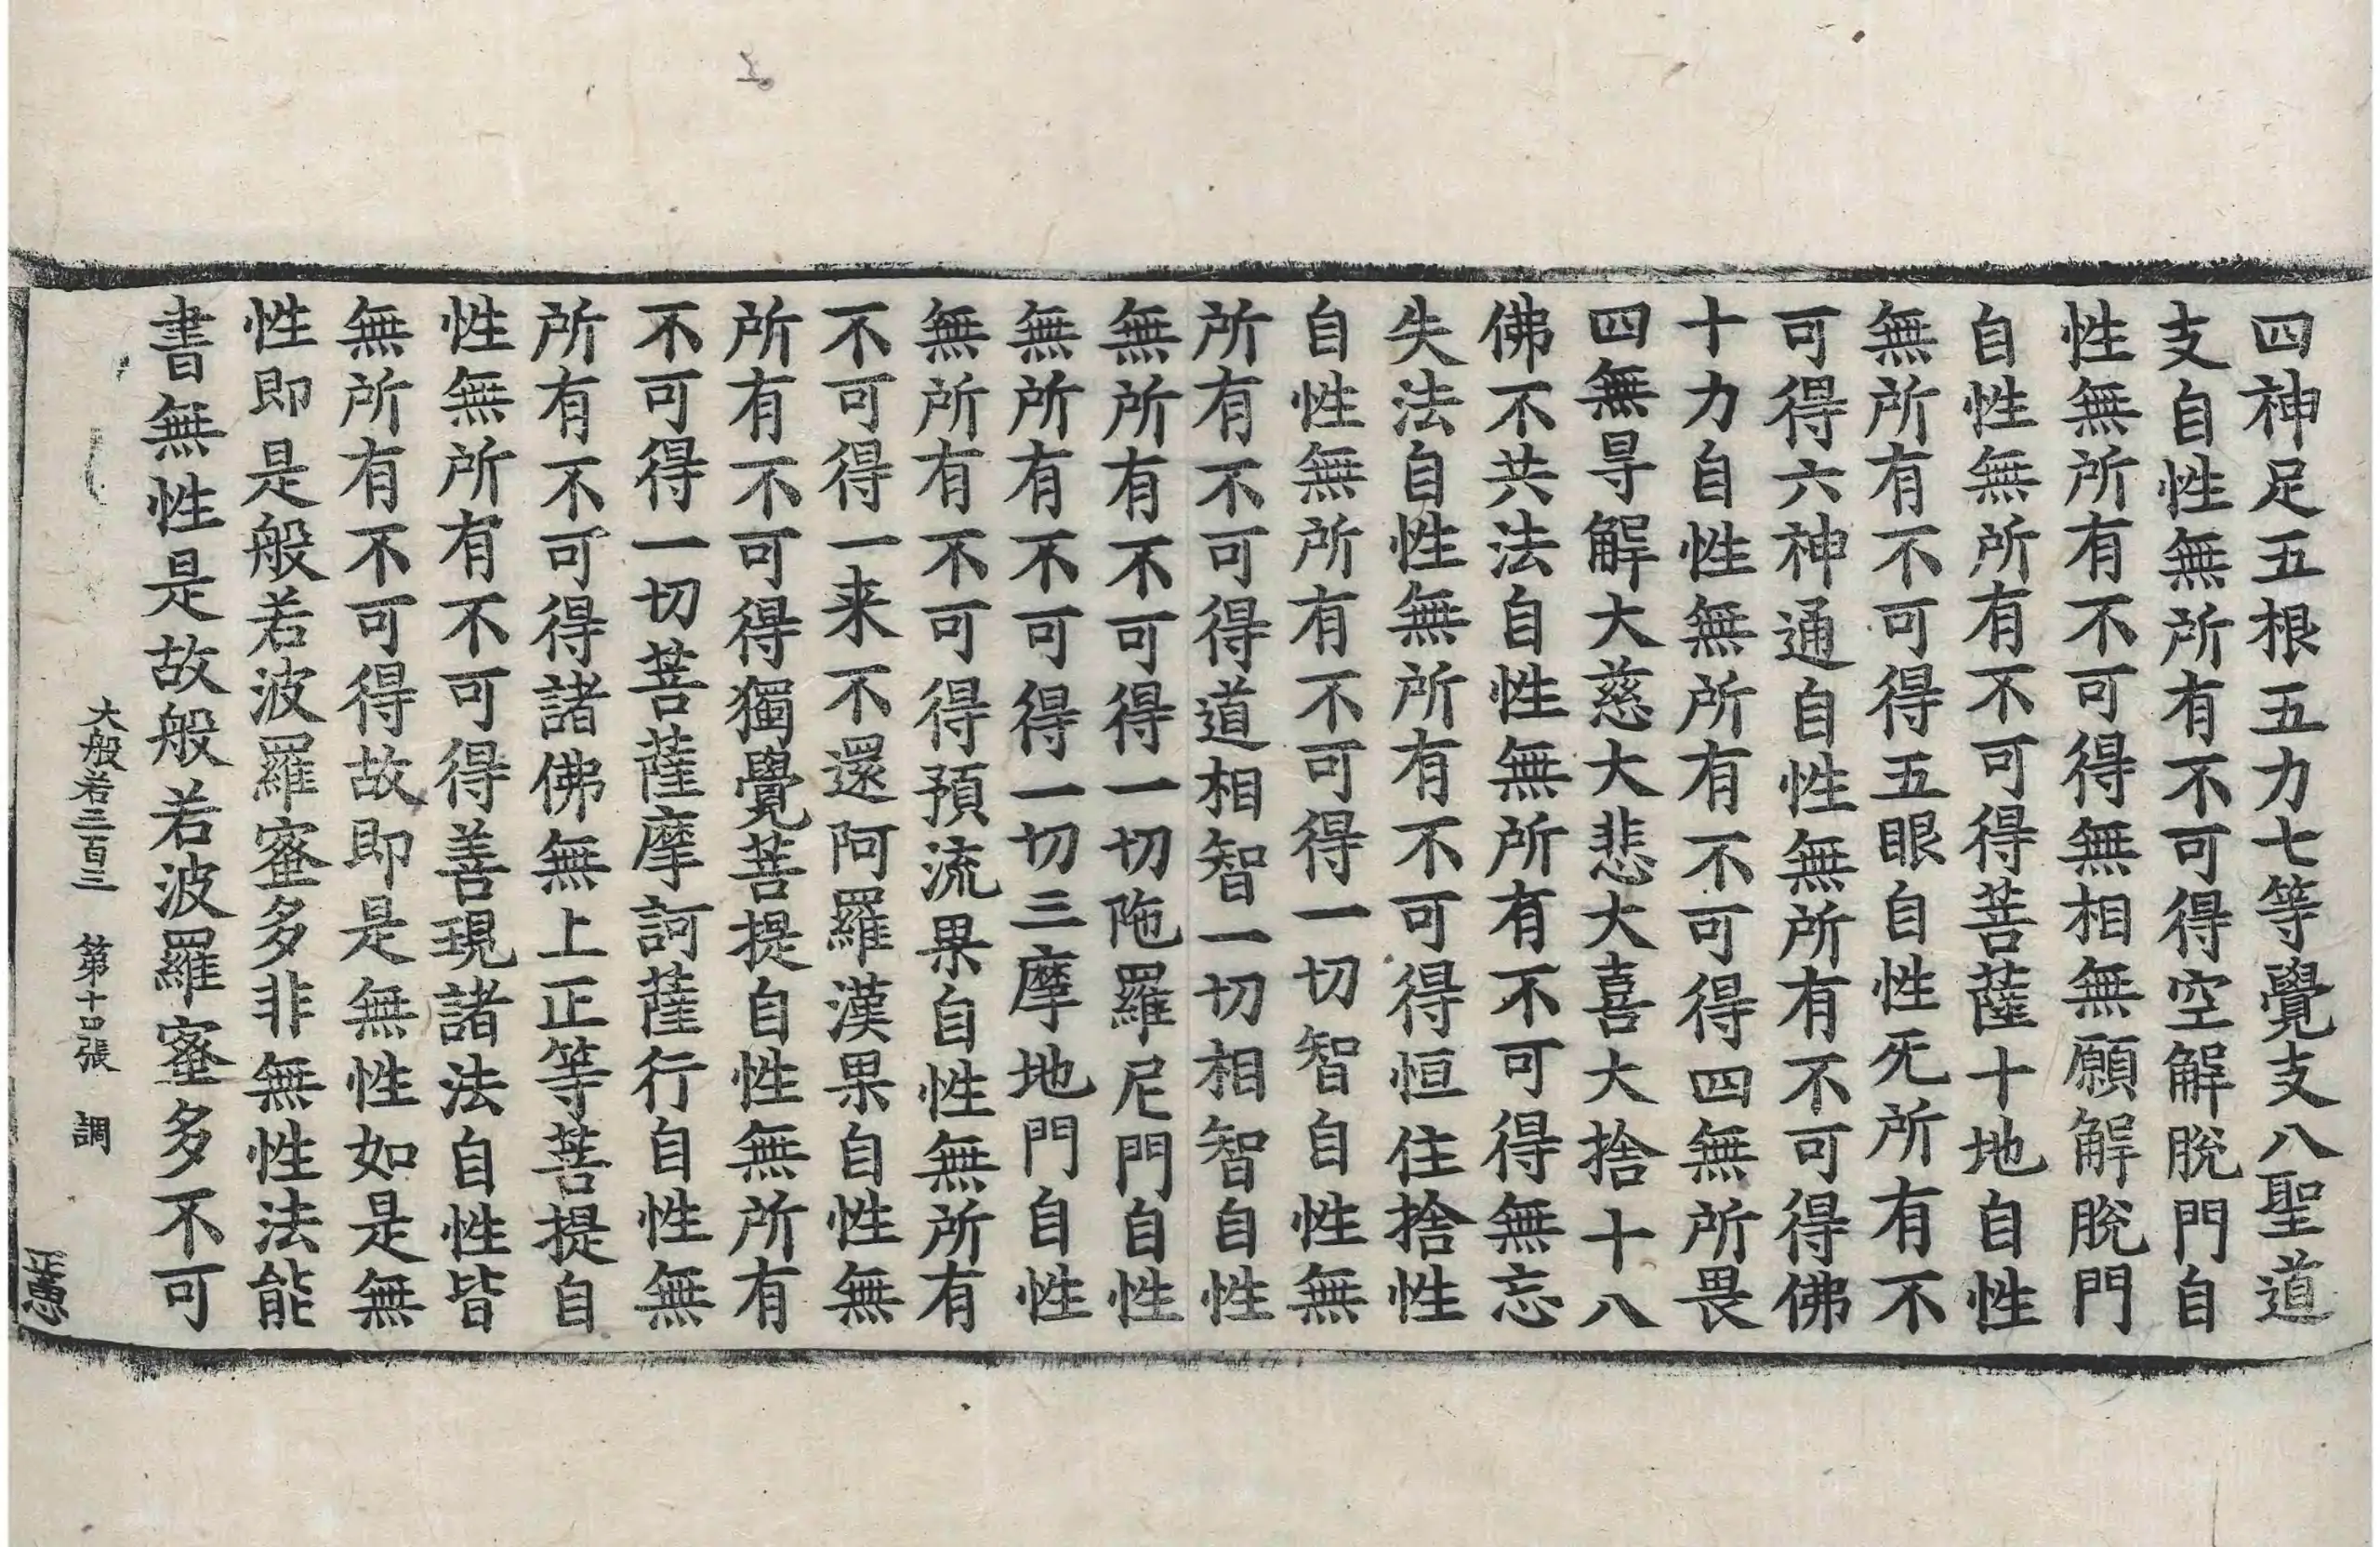 四神足五根五力七等覺支八聖道
支自性無所有不可得空解脫門自
性無所有不可得無相無願解脫門
自性無所有不可得菩薩十地自性
無所有不可得五眼自性无所有不
可得六神通自性無所有不可得佛
十力自性無所有不可得四無所畏
四無㝵解大慈大悲大喜大捨十八
佛不共法自性無所有不可得無忘
失法自性無所有不可得恒住捨性
自性無所有不可得一切智自性無
所有不可得道相智一切相智自性
無所有不可得一切陁羅尼門自性
無所有不可得一切三摩地門自性
無所有不可得預流果自性無所有
不可得一来不還阿羅漢果自性無
所有不可得獨覺菩提自性無所有
不可得一切菩薩摩訶薩行自性無
所有不可得諸佛無上正等菩提自
性無所有不可得善現諸法自性皆
無所有不可得故即是無性如是無
性即是般若波羅蜜多非無性法能
書無性是故般若波羅蜜多不可
大般若三百三 第十口張 調